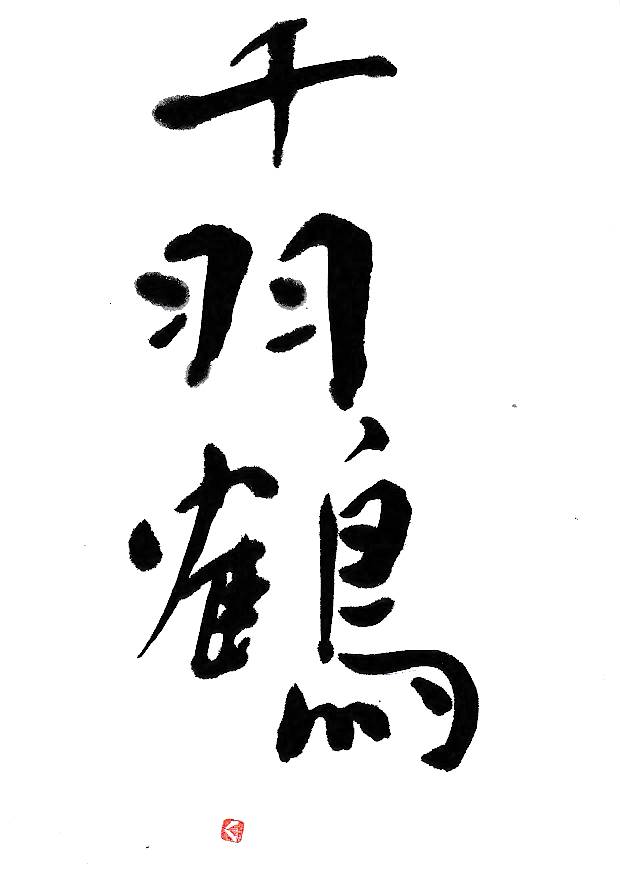 千羽鶴